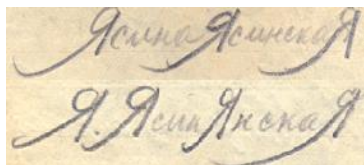 Ясина ЯсинскаЯ
Я. ЯсинЯнскаЯ